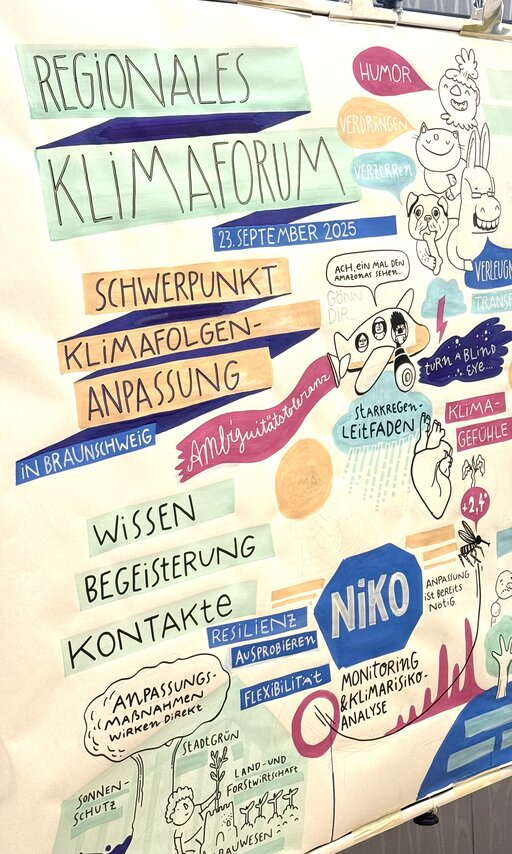 REGIONALES
KLIMAFORUM
23. SEPTEMBER 2025
SCHWERPUNKT
KLIMAFOLGEN-
ANPASSUNG
IN BRAUNSCHWEIG
HUMOR
VERDRÄNGEN
VERZERREN
ACH, EIN MAL DEN
AMAZONAS SEHEN...
GÖNN
DIR...
TURN A BLIND
EYE...
Ambiguitätstoleranz
STARKREGEN-
LEITFADEN
KLIMA-
GEFÜHLE
+2,4°
WISSEN
BEGEISTERUNG
KONTAKTE
NiKO
RESILIENZ
AUSPROBIEREN
FLEXIBILITÄT
ANPASSUNG
IST BEREITS
NÖTIG
MONITORING
& KLIMARISIKO-
ANALYSE
ANPASSUNGS-
MAßNAHMEN
WIRKEN DIREKT
STADTGRÜN
SONNEN-
SCHUTZ
LAND- UND
FORSTWIRTSCHAFT
BAUWESEN